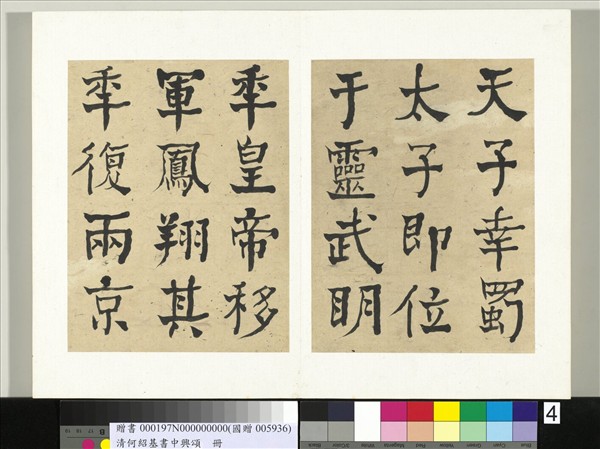 天子幸蜀
太子即位
于靈武明
秊皇帝移
軍鳳翔其
秊復兩京
4
贈書 000197N000000000(國贈 005936)
清何紹基書中興頌 冊